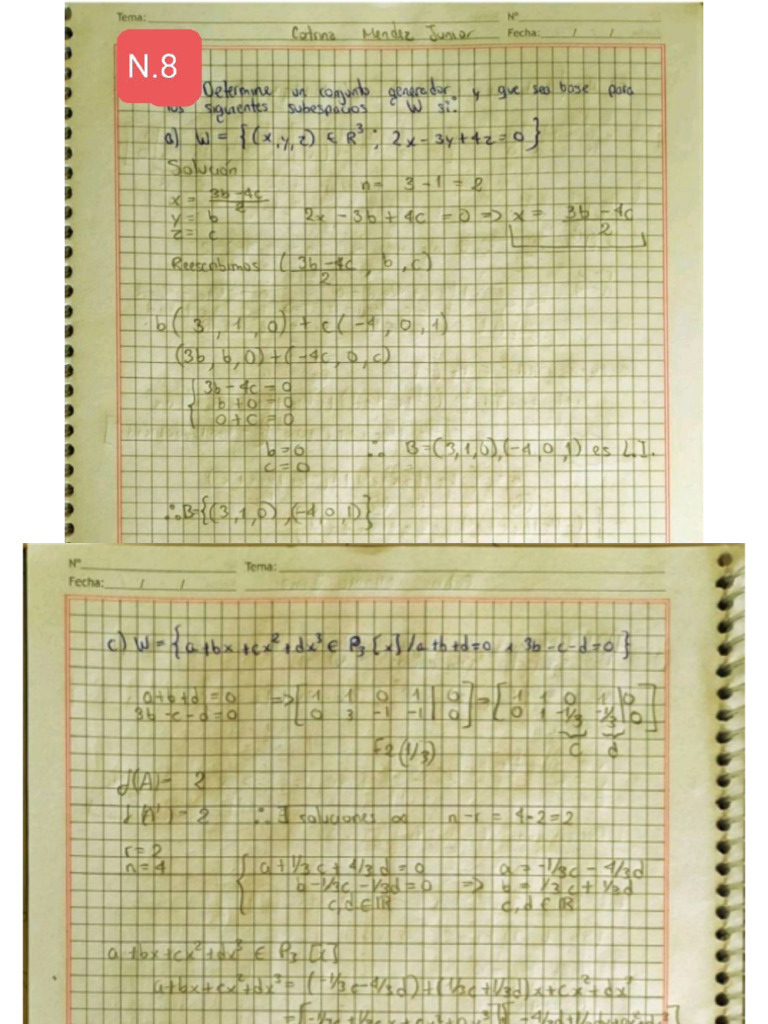 Tema: N°
Catina Mendez Junior Fecha: / /
N.8
Determine un conjunto generador, y que sea base para
los siguientes subespacios W si:
a) W = {(x,y,z) ∈ R³ ; 2x-3y+4z=0}
Solución
n= 3-1 = 2
x = (3b-4c)/2
y = b
z = c
2x - 3b + 4c = 0 => x = (3b-4c)/2
Reescribimos ( (3b-4c)/2 , b , c )
b( 3 , 1 , 0) + c(-4 , 0 , 1)
(3b, b, 0) + (-4c, 0, c)
{ 3b-4c=0
b+0=0
0+c=0
b=0
c=0
∴ B=(3,1,0),(-4,0,1) es L.I.
∴B={(3,1,0),(-4,0,1)}
N° Tema:
Fecha: / /
c) W={a+bx+cx²+dx³ ∈ P₃[x]/a+b+d=0 ∧ 3b-c-d=0}
a+b+d=0
3b-c-d=0
=> [ 1 1 0 1 | 0
0 3 -1 -1 | 0 ]
=> [ 1 1 0 1 | 0
0 1 -1/3 -1/3 | 0 ]
F2(1/3) c d
f(A)= 2
f(A')=2 ∴ ∃ soluciones ∞ n-r = 4-2=2
r=2
n=4
{ a+1/3c+4/3d=0
b-1/3c-1/3d=0
c,d∈ℝ
=> a=-1/3c-4/3d
b=1/3c+1/3d
c,d∈ℝ
a+bx+cx²+dx³ ∈ P₃[x]
a+bx+cx²+dx³= (-1/3c-4/3d)+(1/3c+1/3d)x+cx²+dx³